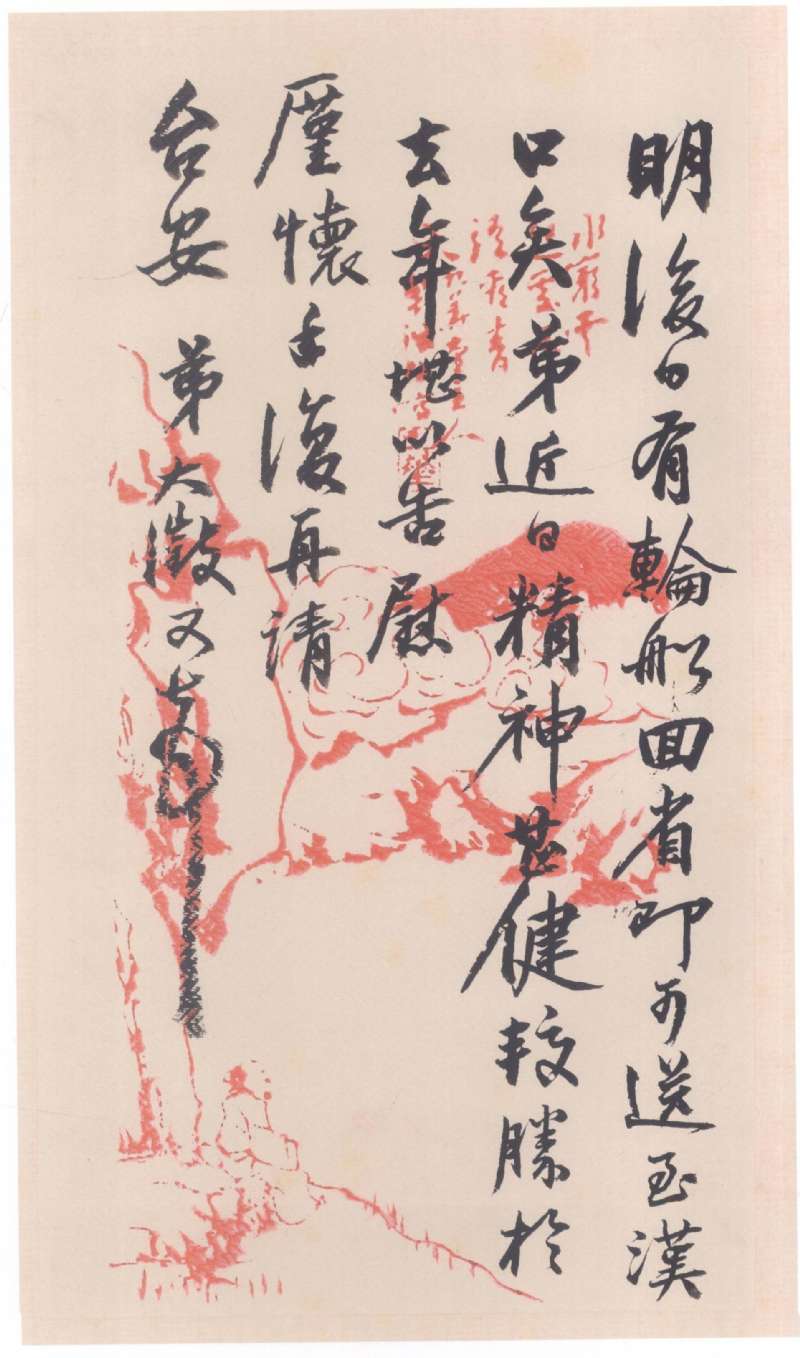 明後日有輪船回省即可送至漢
口矣弟近日精神甚健較勝於
去年堪以告慰
廑懷手復再請
台安 弟大澂又頓